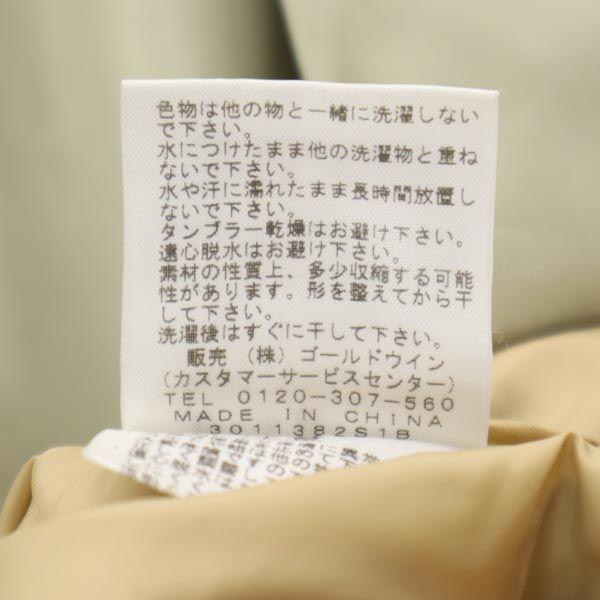 色物は他の物と一緒に洗濯しない
で下さい。
水につけたまま他の洗濯物と重ね
ないで下さい。
水や汗に濡れたまま長時間放置し
ないで下さい。
タンブラー乾燥はお避け下さい。
遠心脱水はお避け下さい。
素材の性質上、多少収縮する可能
性があります。形を整えてから干
して下さい。
洗濯後はすぐに干して下さい。
販売 （株）ゴールドウイン
(カスタマーサービスセンター)
TEL 0120-307-560
MADE IN CHINA
3011382S1B